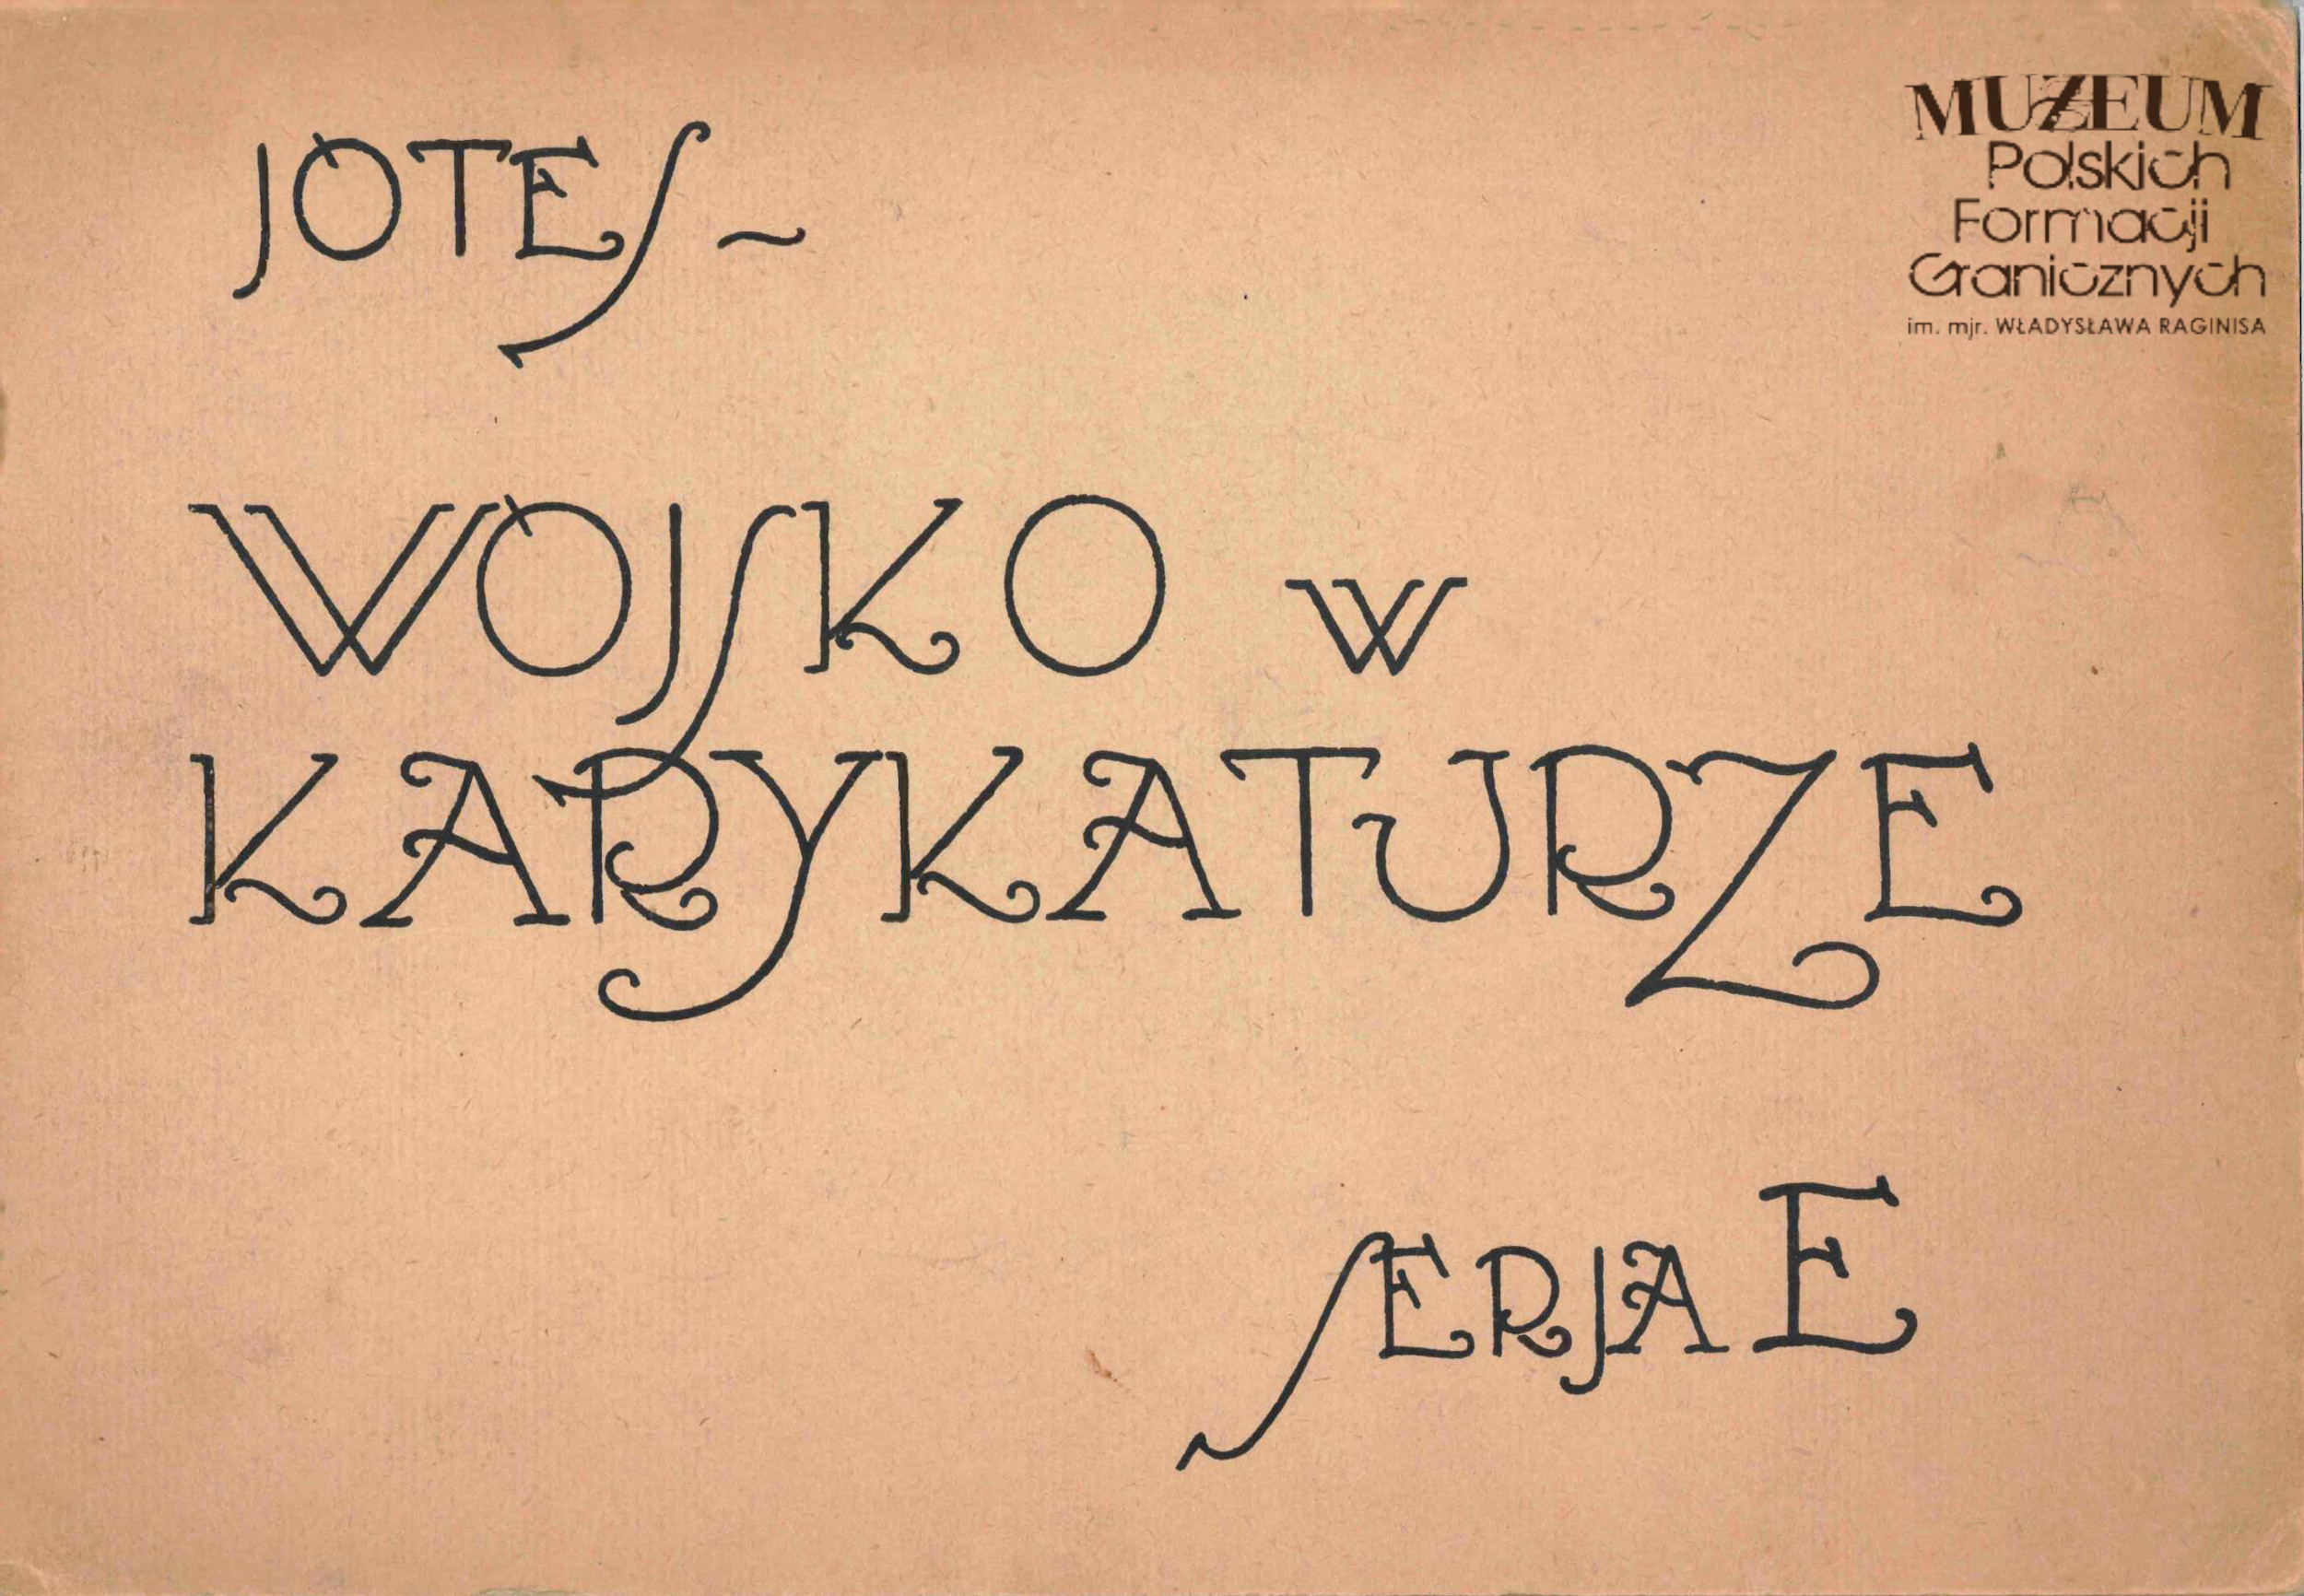 JOTES ~
MUZEUM
Polskich
Formacji
Granicznych
im. mjr. WŁADYSŁAWA RAGINISA
WOJSKO W
KARYKATURZE
SERJA E